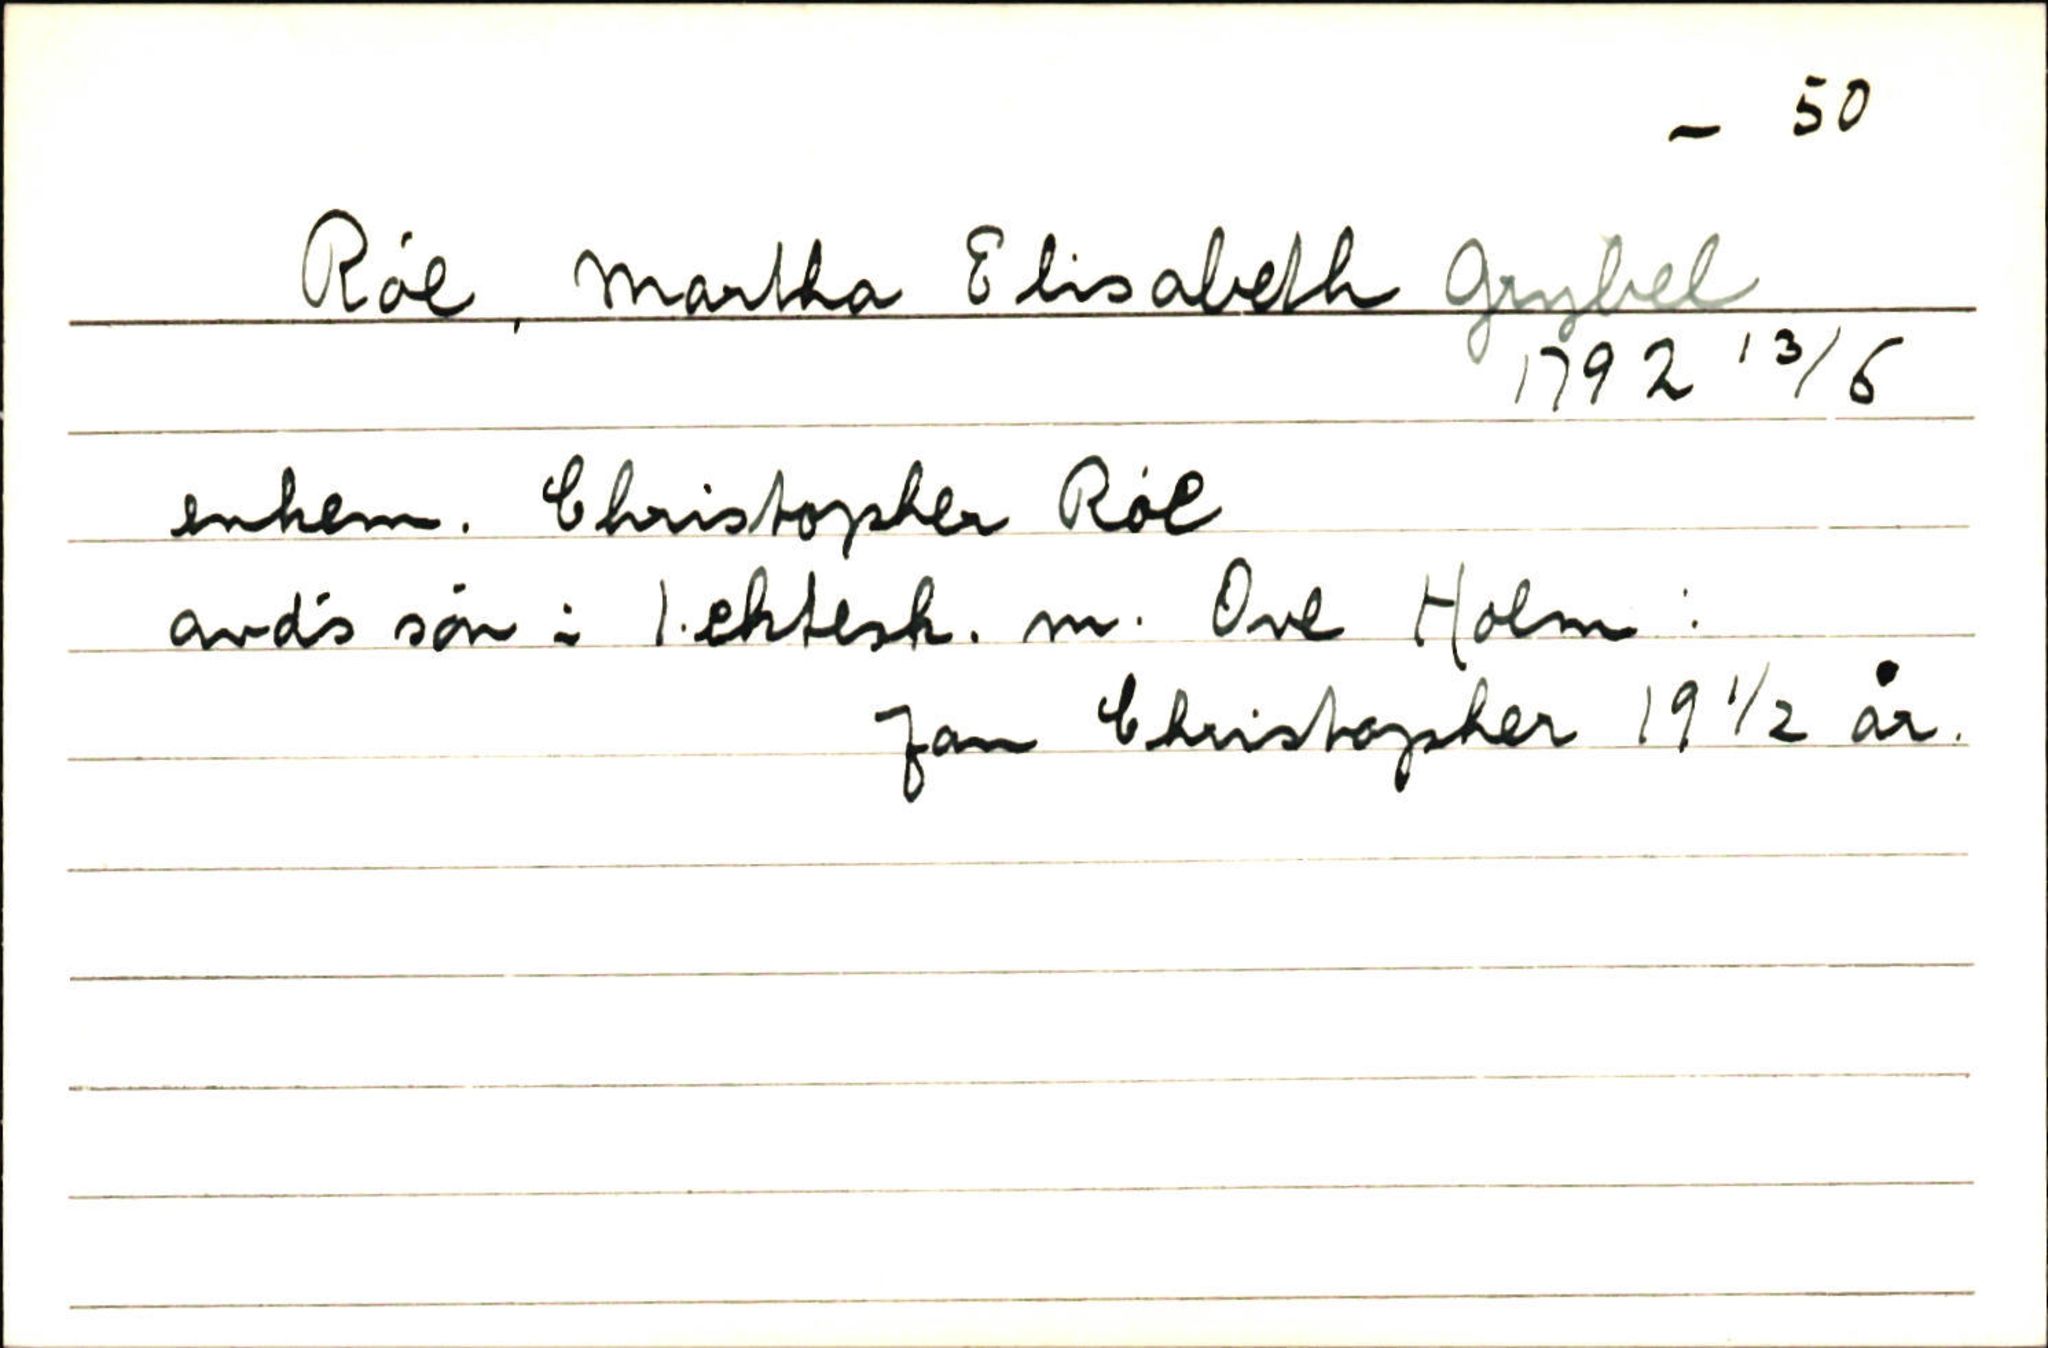 – 50
Róe, Martha Elisabeth Grybel
1792 13/6
enkem. Christopher Róe
avd's són i 1. ektesk. m. Ove Holm :
Jan Christopher 19 1/2 år.